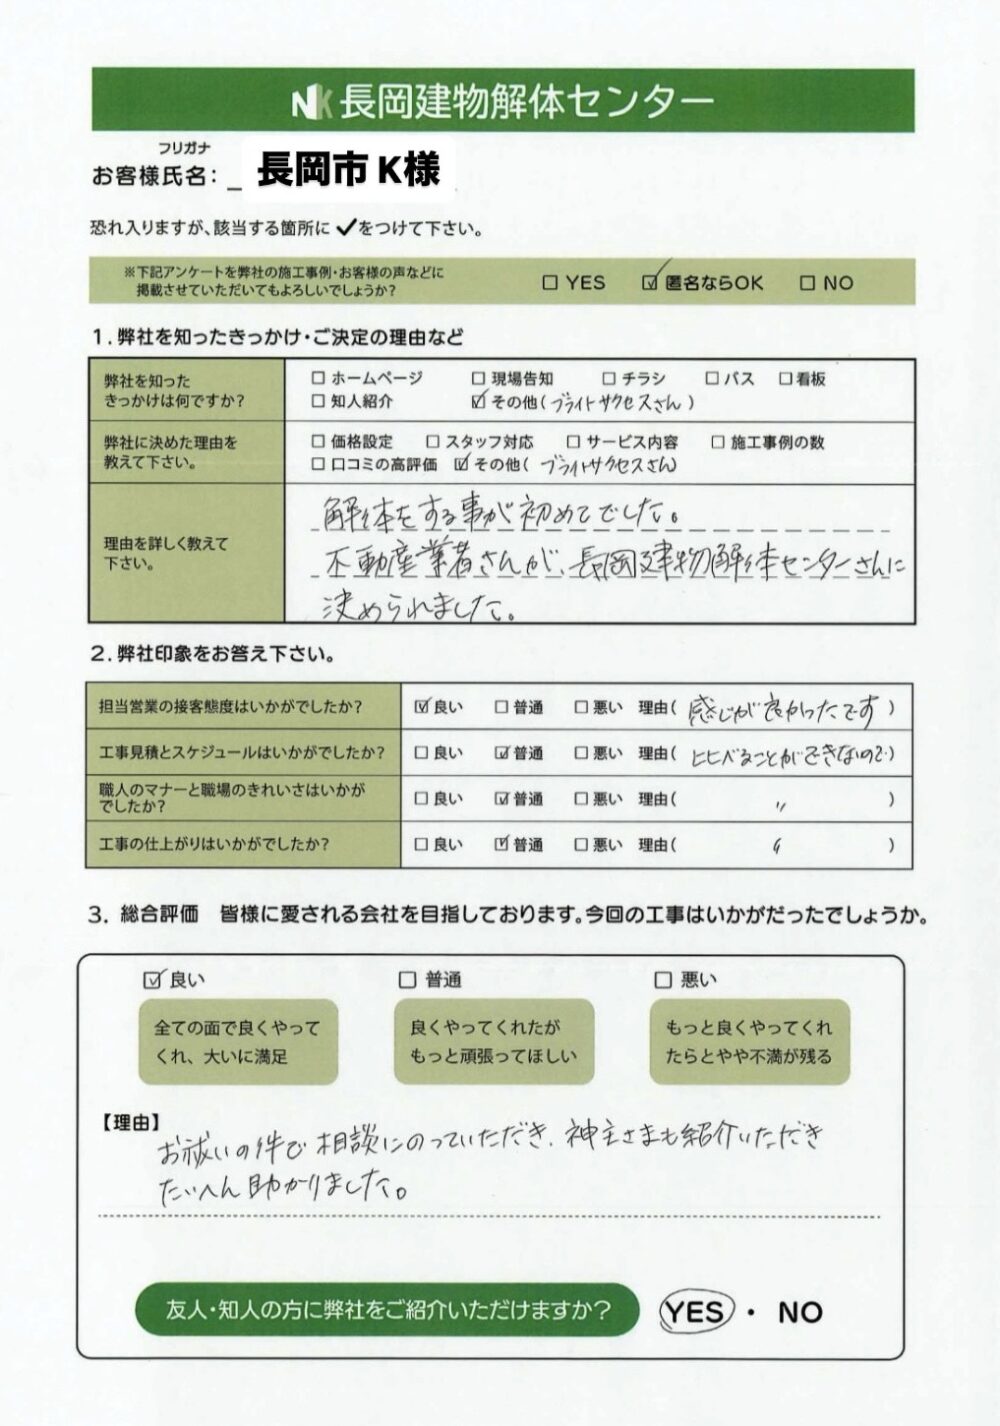 NK 長岡建物解体センター
フリガナ
お客様氏名: 長岡市 K様
恐れ入りますが、該当する箇所に✔をつけて下さい。
※下記アンケートを弊社の施工事例・お客様の声などに
掲載させていただいてもよろしいでしょうか?
□ YES ☑ 匿名ならOK □ NO
1.弊社を知ったきっかけ・ご決定の理由など
弊社を知った
きっかけは何ですか?
□ ホームページ □ 現場告知 □ チラシ □ バス □ 看板
□ 知人紹介 ☑ その他(ブライトサクセスさん)
弊社に決めた理由を
教えて下さい。
□ 価格設定 □ スタッフ対応 □ サービス内容 □ 施工事例の数
□ 口コミの高評価 ☑ その他(ブライトサクセスさん)
理由を詳しく教えて
下さい。
解体をする事が初めてでした。
不動産業者さんが、長岡建物解体センターさんに
決められました。
2.弊社印象をお答え下さい。
担当営業の接客態度はいかがでしたか? ☑ 良い □ 普通 □ 悪い 理由(感じが良かったです)
工事見積とスケジュールはいかがでしたか? □ 良い ☑ 普通 □ 悪い 理由(ヒヒべることができないので)
職人のマナーと職場のきれいさはいかが
でしたか?
□ 良い ☑ 普通 □ 悪い 理由( 〃 )
工事の仕上がりはいかがでしたか? □ 良い ☑ 普通 □ 悪い 理由( 〃 )
3. 総合評価 皆様に愛される会社を目指しております。今回の工事はいかがだったでしょうか。
☑ 良い □ 普通 □ 悪い
全ての面で良くやって
くれ、大いに満足
良くやってくれたが
もっと頑張ってほしい
もっと良くやってくれ
たらとやや不満が残る
【理由】
お祓いの件で相談にのっていただき、神主さまも紹介いただき
たいへん助かりました。
友人・知人の方に弊社をご紹介いただけますか? YES ・ NO